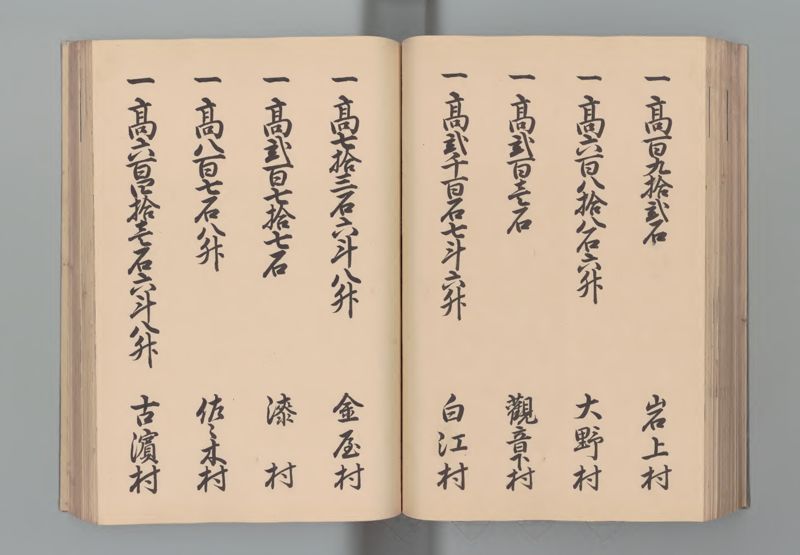 一 高百九拾弐石 岩上村
一 高六百八拾八石六升 大野村
一 高弐百壱石 觀音下村
一 高弐千百石七斗六升 白江村
一 高七拾三石六斗八升 金屋村
一 高弐百七拾七石 漆村
一 高八百七石八升 佐々木村
一 高六百四拾壱石六斗八升 古濱村